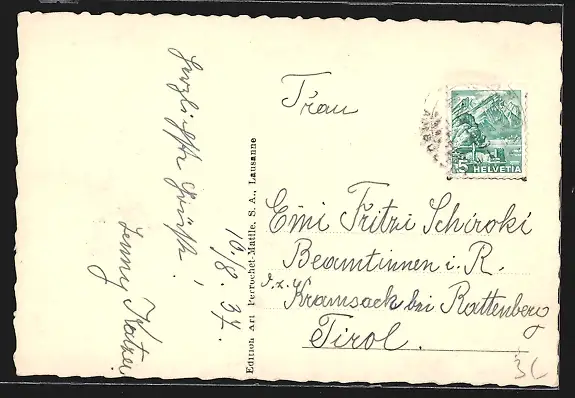 Herzlichste Grüsse!
Jenny Kotzei
10./8. 37.
Edition Art Perrochet-Matile, S. A., Lausanne
Frau
Emi Fritzi Schiroki
Beamtinnen i. R.
d. z. Kramsack bei Rattenberg
Tirol.
5
HELVETIA